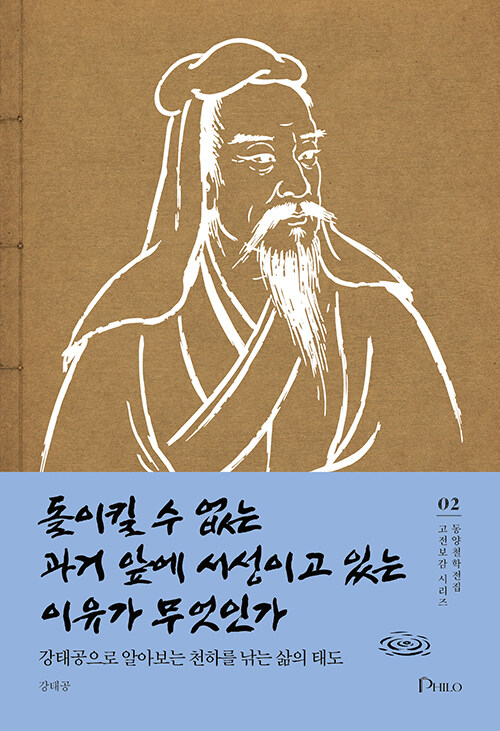 돌이킬 수 없는
과거 앞에 서성이고 있는
이유가 무엇인가
강태공으로 알아보는 천하를 낚는 삶의 태도
강태공
02
동양철학전집
고전보감 시리즈
PHILO